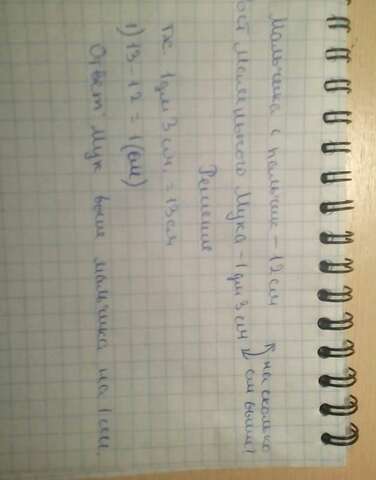 Мальчика с пальчик - 12 см на сколько
ост Маленького Мука - 1 дм 3 см он выше?
Решение
т.к. 1 дм 3 см. = 13 см
1) 13 - 12 = 1 (см)
Ответ: Мук выше мальчика на 1 см.